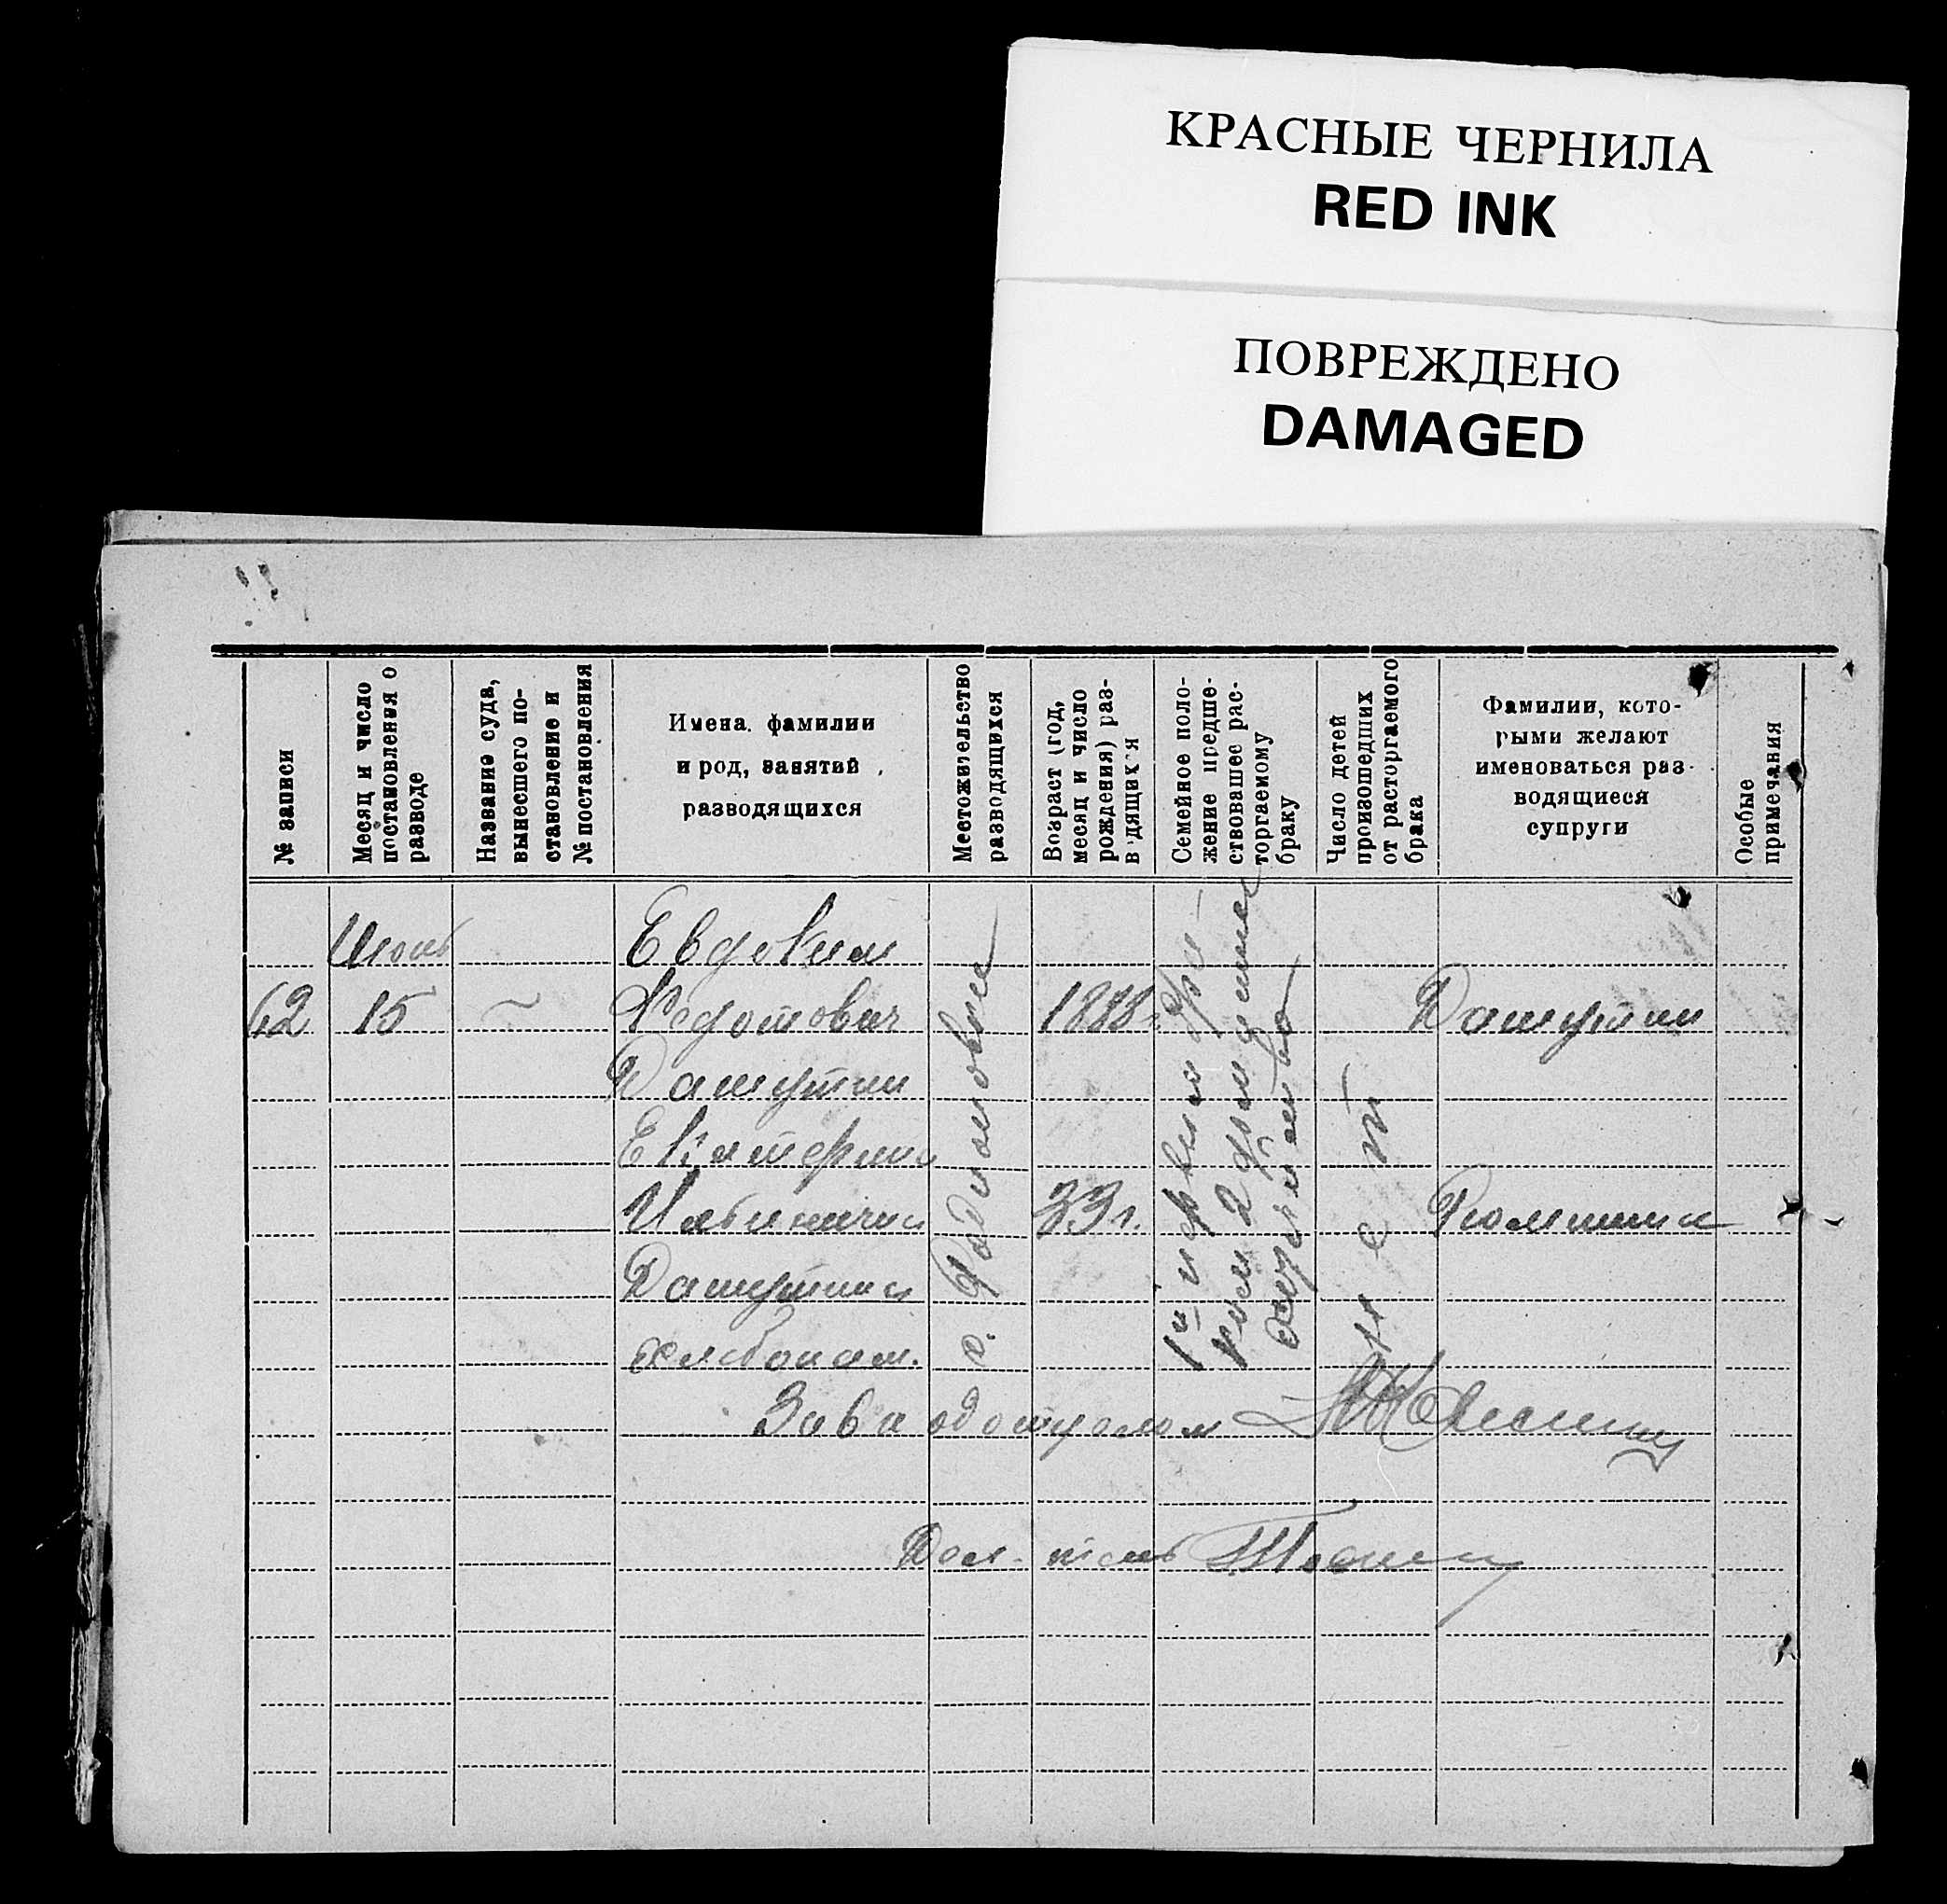 КРАСНЫЕ ЧЕРНИЛА
RED INK
ПОВРЕЖДЕНО
DAMAGED
№ записи
Месяц и число
постановления о
разводе
Название суда,
вынесшего по-
становление и
№ постановления
Имена, фамилии
и род, занятий
разводящихся
Местожительство
разводящихся
Возраст (год,
месяц и число
рождения) раз-
в дящихся
Семейное поло-
жение предше-
ствовавшее рас-
торгаемому
браку
Число детей
произошедших
от расторгаемого
брака
Фамилии, кото-
рыми желают
именоваться раз-
водящиеся
супруги
Особые
примечания
62
Июнь
15
Евдоким
Федотович
Дашутин
Екатерина
Ильинична
Дашутина
хлебопаш.
с. Радионовка
1888г.
33 г.
нет
Дашутин
Зав. подотделом